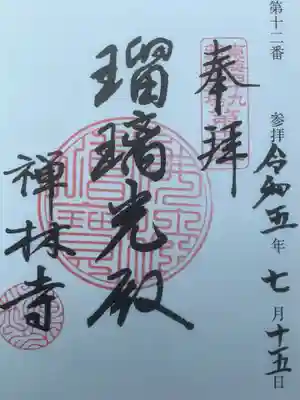 第十二番 参拝 令和五年 七月十五日
奉拝
瑠璃光殿
禅林寺